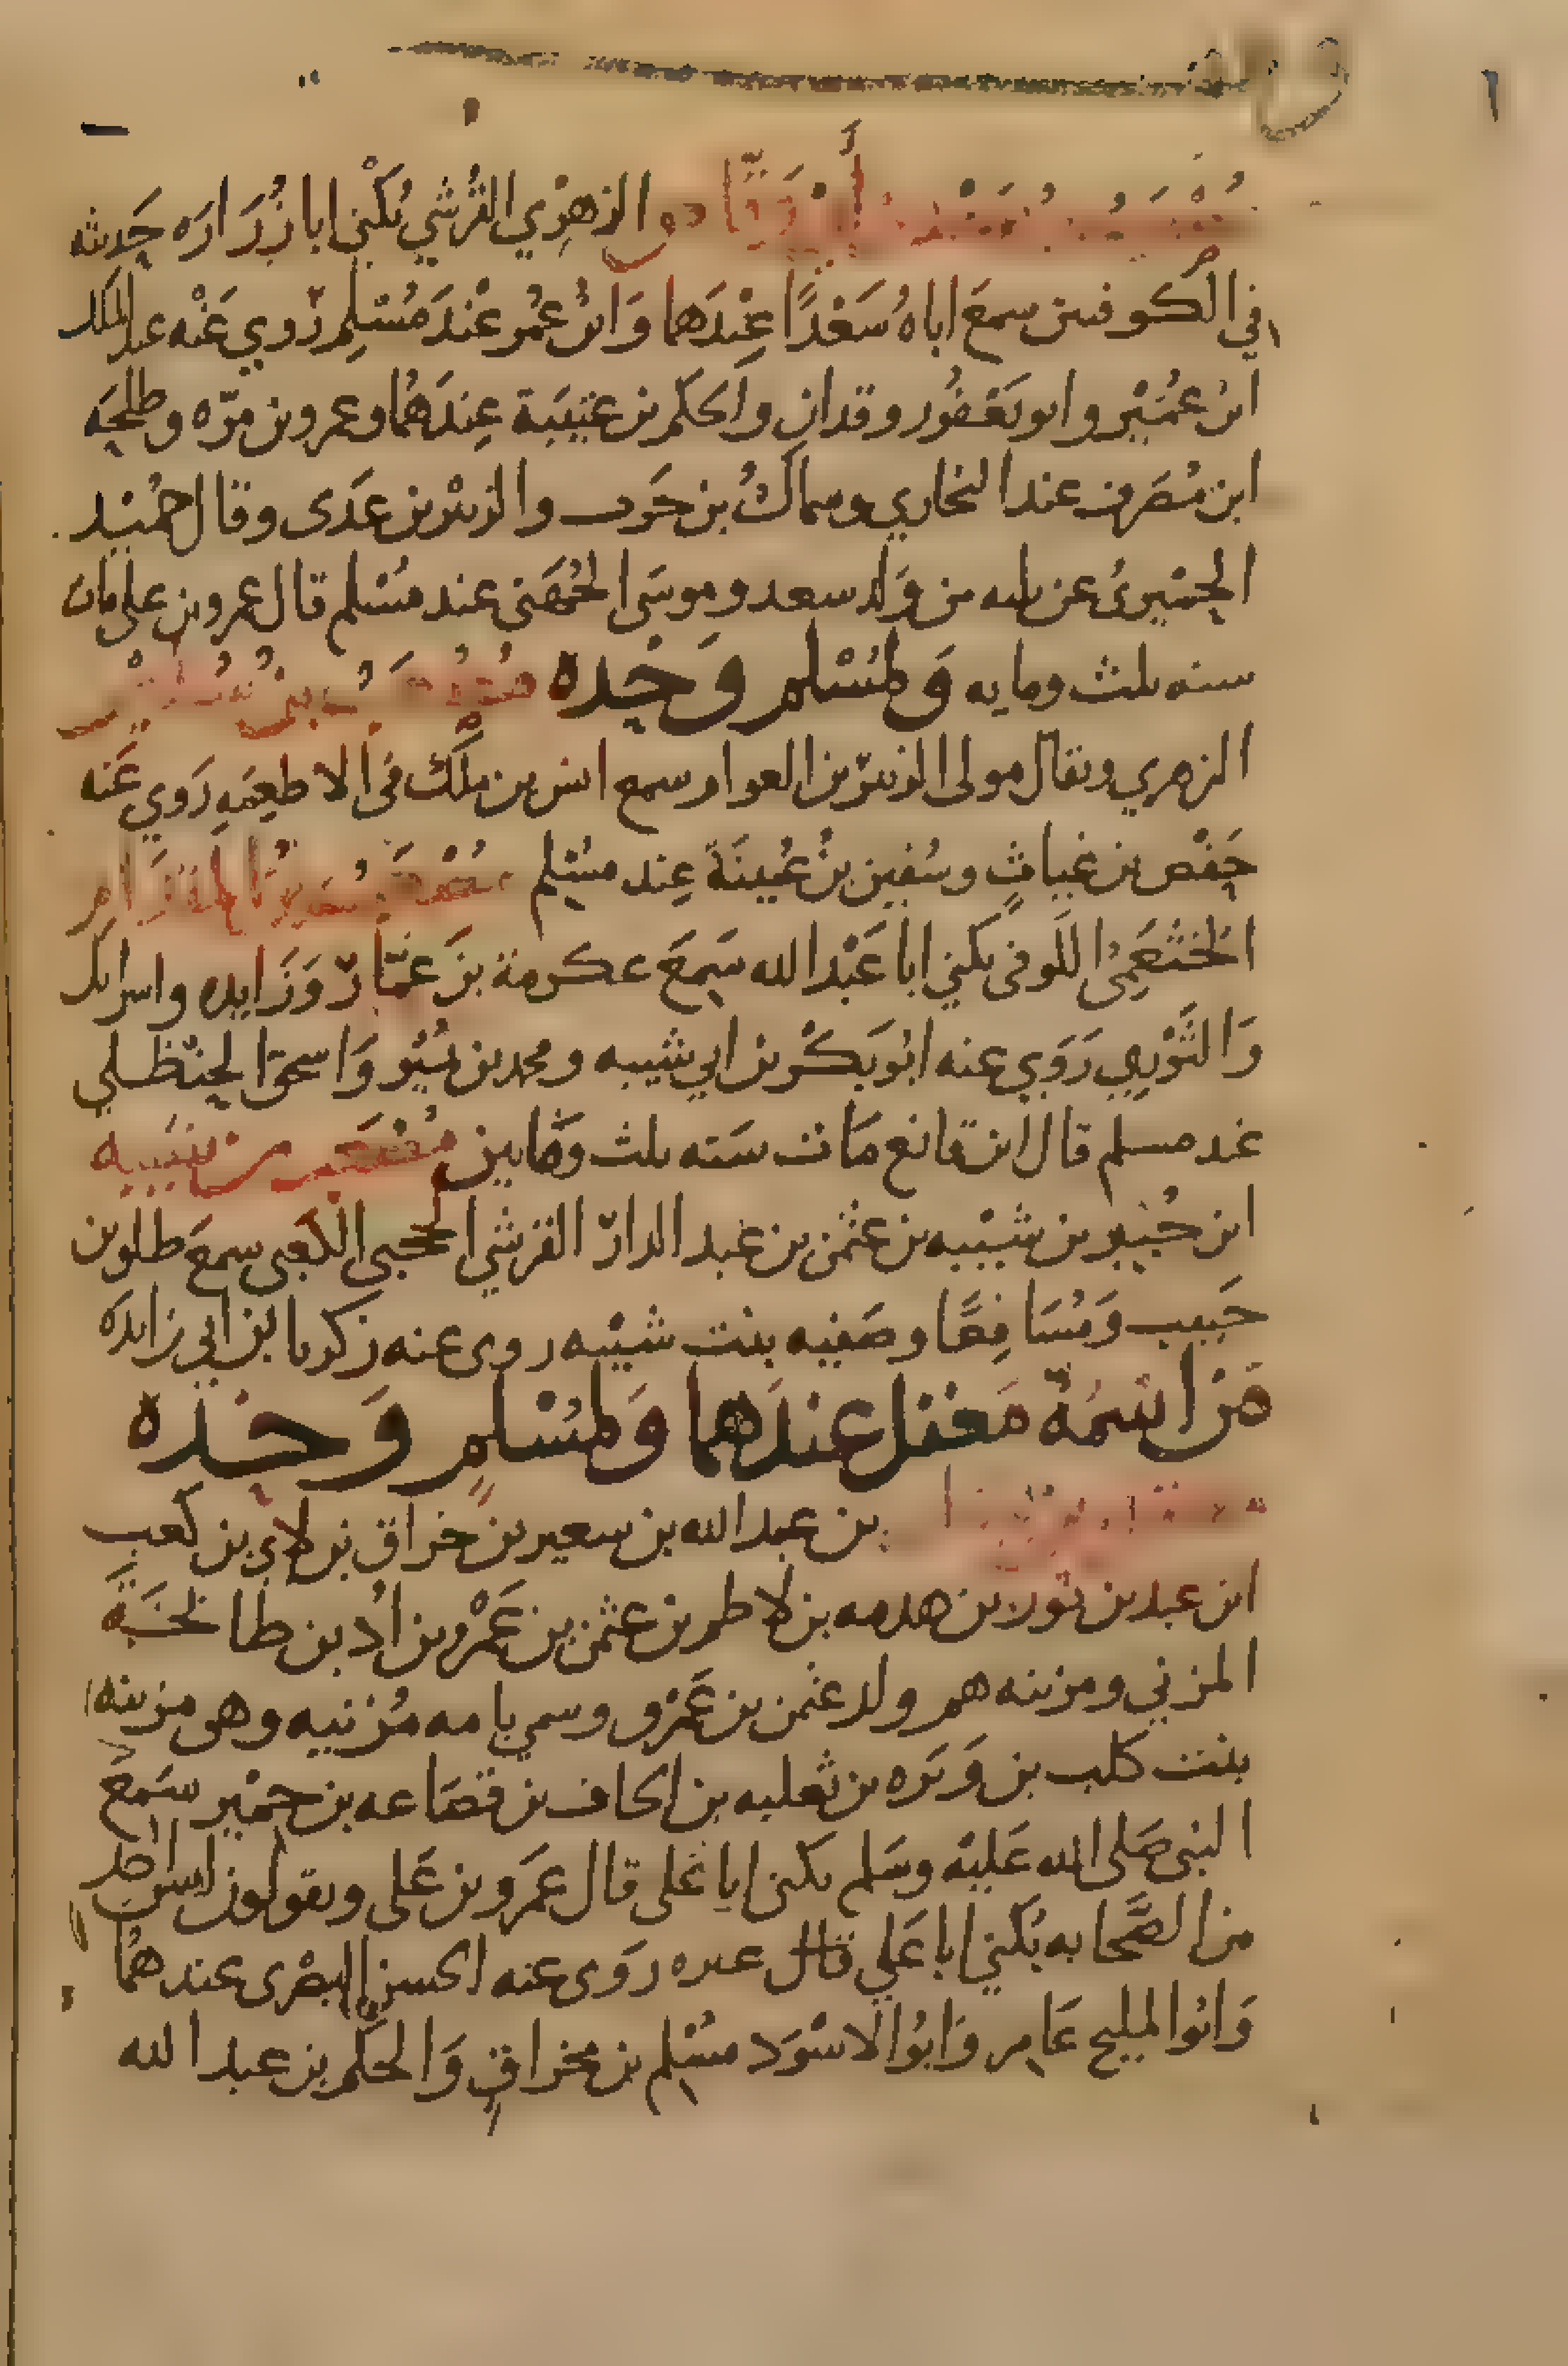 مُصْعَب بن سَعْد بن أبي وَقَّاص الزهرِي القُرشي يُكْنى ابا زُرَارَه حَديثه
في الكوفيين سمعَ اباهُ سَعْدًا عِنْدَهما وَابنُ عُمر عنْدَ مُسْلِم رَوي عَنْه عبد الملك
ابن عُمَيْر وابو يَعْفُور وقدان والحكم بن عتيبَة عِندَهُما وعمرو بن مرّه وطلحَه
ابن مُصَرف عند البخاري وسماكُ بن حَرب والزبير بن عَدَى وقال حُمَيْد
الحِمْيرىُ عن ثلثه من وَلد سعد وموسَى الجُهَنى عند مسْلم قال عمرو بن على مات
سنه ثلث ومايه وَلمُسْلم وَحْده مُصْعَبُ بنُ سُلَيْم
الزهري ويقال مولى الزبيْر بن العوام سمع انس بن ملك فى الاطعِمَهِ رَوي عَنه
حَفْص بن غياثٍ وسُفين بنُ عُيينَةَ عِند مسْلم مُصْعَبُ بنُ المقدَام
الخثعَمِىُ الكوفى يكني ابا عَبْد الله سَمِعَ عكرمة بنَ عَمَّار وَزَايده واسرايل
وَالثَوْرِي رَوَي عنه ابُو بَكْر بن ابي شيبه ومحمد بن نُمَيْر وَاسحق الحنْظلي
عند مسلم قال ابن قانع مَات سَنه ثلث وَمايتين مُصْعَب بن شيبه
ابن جُبَيْر بن شيْبه بن عثمن بن عبد الدار القرشي الحجبي الكعبى سمعَ طلق بن
حَبيب وَمُسَافِعًا وصَفيه بنت شيْبه روى عنه زكريا بن ابي زايدَه
مَنْ اسْمُهُ مَعْقل عندَهما وَلمُسْلمٍ وَحْدَه
بن عبد الله بن معير بن حراق بن لاي بن كعب
ابن عبد بن ثور بن هدمه بن لاطم بن عثمن بن عَمْرو بن اُد بن طابخَةَ
المزني ومزينه هم ولد عثمن بن عَمْرو وسمي بامه مُزينه وهى مزينه
بنت كلب بن وَبَره بن ثعلبه بن الحاف بن قُضَاعه بن حمْير سَمعَ
النبى صَلى الله عَليْه وسَلم يكنى ابا عَلى قال عَمرو بن عَلى ويقولون ليس احد
من الصَّحابه يُكنى ابا عَلي قال عده رَوَى عنه الحسن البصْرى عندهُما
وَابوا المليح عَامر وَابُوا الاسْوَد مسْلم بن مخراقٍ وَالحكم بن عبد الله